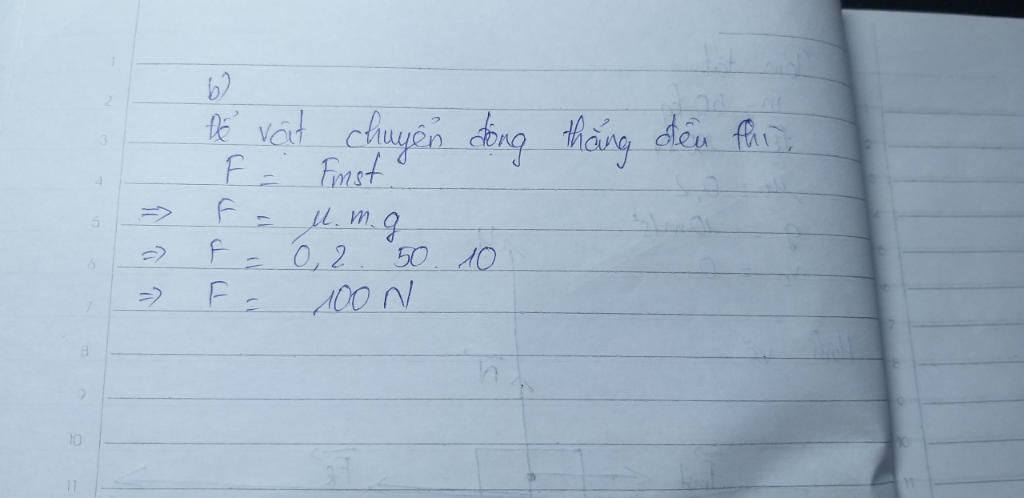 b)
Để vật chuyển động thẳng đều thì.
F = Fmst.
=> F = μ.m.g
=> F = 0,2 . 50 . 10
=> F = 100 N